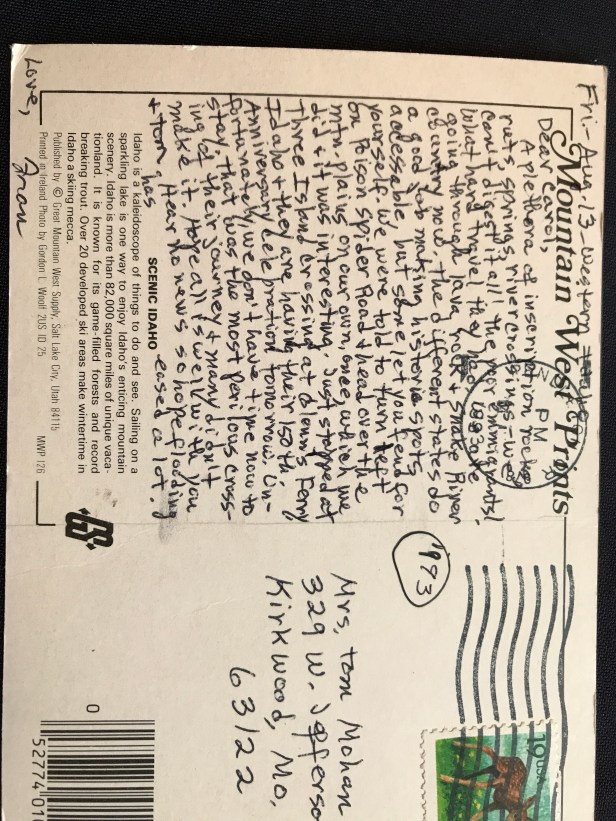 Mountain West Prints
Fri- Aug. 13- Western
Dear Carol,
A plethera of inscription rocks,
ruts, springs, river crossings - we
can't digest it all! The poor immigrants!
What hard travel they had. We're
going through lava rock + Snake River
country now. The different states do
a good job making historic spots
accessable, but some let you fend for
yourself. We were told to turn left
on Poison Spider Road + head over the
mtn. plains on our own, once, which we
did. It was interesting. Just stopped at
Three Island Crossing at Glenns Ferry
Idaho + they are having their 150th.
Anniversary Celebration tomorrow. Un-
fortunately, we don't have time now to
stay. That was the most perilous cross-
ing of their journey + many didn't
make it. Hope all is well with you
+ Tom. Hear no news so hope flooding
has eased a lot.
Love,
Fran
PM
1993
SCENIC IDAHO
Idaho is a kaleidoscope of things to do and see. Sailing on a
sparkling lake is one way to enjoy Idaho's enticing mountain
scenery. Idaho is more than 82,000 square miles of unique vaca-
tionland. It is known for its game-filled forests and record
breaking trout. Over 20 developed ski areas make wintertime in
Idaho a skiing mecca.
Published by © Great Mountain West Supply, Salt Lake City, Utah 84115
Printed in Ireland Photo by Gordon L. Wolff 2US ID 25
MWP 126
1993
19 USA
Mrs. Tom Mohan
329 W. Jefferso
Kirkwood, Mo.
63122
0
52774 01